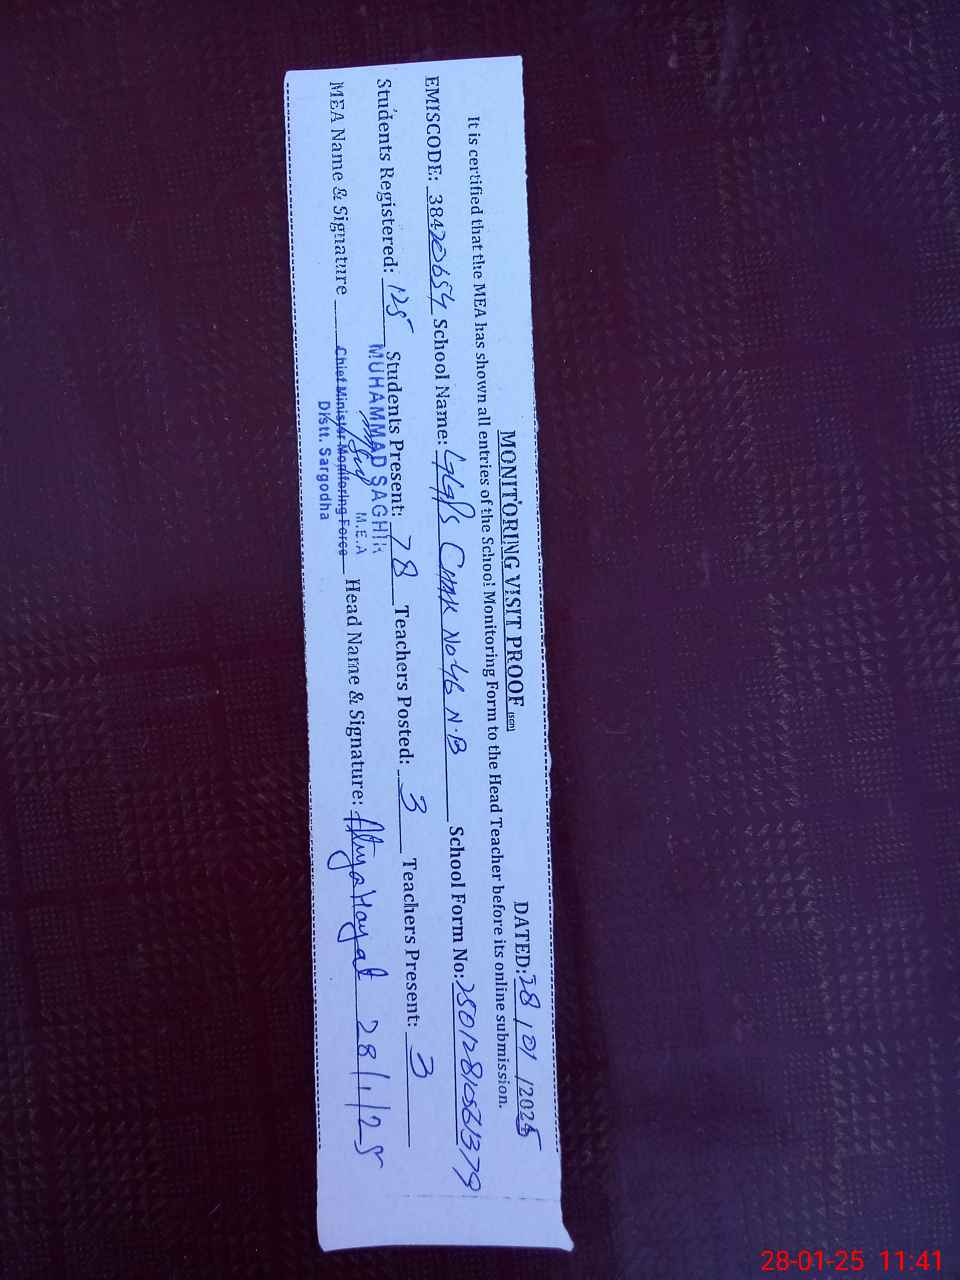 MONITORING VISIT PROOF (SGD)
DATED: 28/01/2025
It is certified that the MEA has shown all entries of the School Monitoring Form to the Head Teacher before its online submission.
EMISCODE: 38420654 School Name: GGPS Chak No 46 N.B School Form No:
Students Registered: 125 Students Present: 78 Teachers Posted: 3 Teachers Present: 3
MUHAMMAD SAGHIR
M.E.A
MEA Name & Signature Chief Minister Monitoring Force Head Name & Signature: Atiya Hayat 28/1/25
Distt. Sargodha
28-01-25 11:41